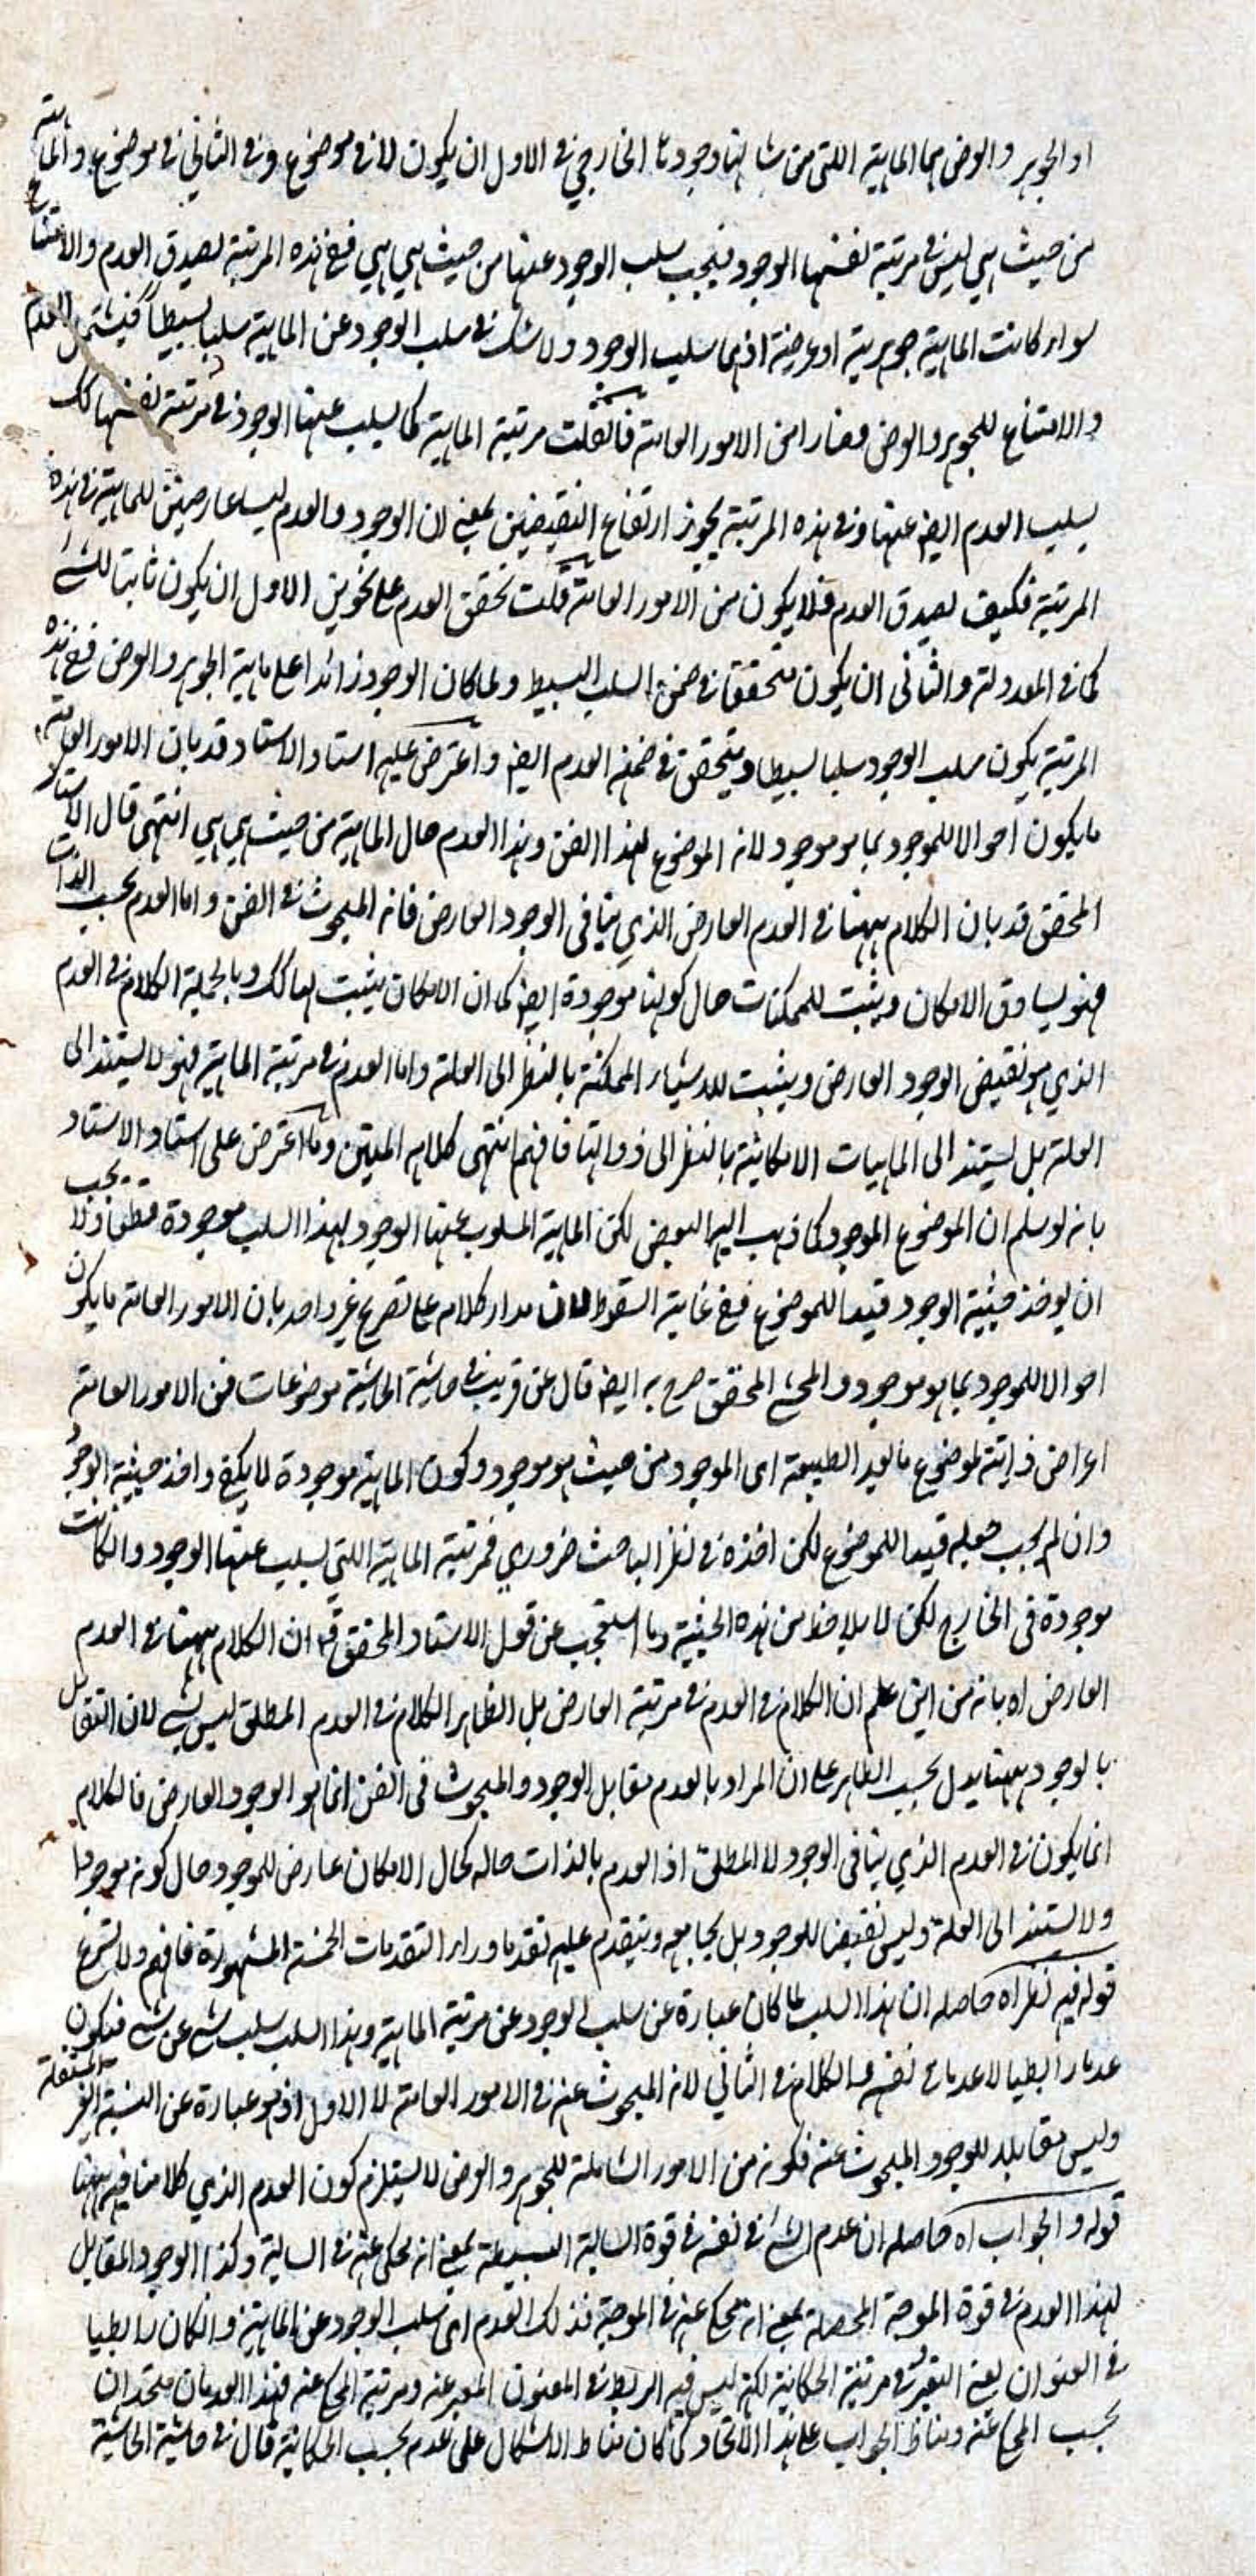 اذ الجوهر والعرض هما الماهية اللتي من شانها وجودها الخارجي في الاول ان يكون لا في موضوع وفي الثاني في موضوع والماهية
من حيث هي ليس في مرتبة نفسها الوجود فيجب سلب الوجود عنها من حيث هي هي ففي هذه المرتبة يصدق العدم والامتناع
سواء كانت الماهية جوهرية او عرضية اذ هما سلب الوجود ولا شك في سلب الوجود عن الماهية سلبا بسيطا فيشتمل العدم
والامتناع للجوهر والعرض فصارا من الامور العامة فان قلت مرتبة الماهية كما يسلب عنها الوجود في مرتبة نفسها كك
يسلب العدم ايضا عنها وفي هذه المرتبة يجوز ارتفاع النقيضين بمعنى ان الوجود والعدم ليسا عارضين للماهية في هذه
المرتبة فكيف يصدق العدم فلا يكون من الامور العامة قلت تحقق العدم على نحوين الاول ان يكون ثابتا لشئ
كما في المعدولة والثاني ان يكون متحققا في ضمن السلب البسيط ولما كان الوجود زائدا على ماهية الجوهر والعرض ففي هذه
المرتبة يكون سلب الوجود سلبا بسيطا ويتحقق في ضمنه العدم ايضا واعترض عليه استاد الاستاد قد بان الامور العامة
ما يكون احوالا للموجود بما هو موجود لانه الموضوع لهذا الفن وهذا العدم حال الماهية من حيث هي هي انتهى قال الاستاد
المحقق قد بان الكلام ههنا في العدم العارض الذي ينافي الوجود العارض فانه المبحوث في الفن واما العدم بحسب الذات
فهو يساوق الامكان ويثبت للممكنات حال كونها موجودة ايضا كما ان الامكان يثبت لها كك وبالجملة الكلام في العدم
الذي هو نقيض الوجود العارض ويثبت للاشياء الممكنة بالنظر الى العلة واما العدم في مرتبة الماهية فهو لا يستند الى
العلة بل يستند الى الماهيات الامكانية بالنظر الى ذواتها فافهم انتهى كلامه المتين وما اعترض على استاد الاستاد
بانه لو سلم ان الموضوع الموجود كما ذهب اليه البعض لكن الماهية المسلوب عنها الوجود بهذا السلب موجودة قطعا ولا يجب
ان يوخذ حيثية الوجود قيدا للموضوع ففي غاية السقوط لان مدار كلامه على تصريح غير واحد بان الامور العامة ما يكون
احوالا للموجود بما هو موجود والمحشي المحقق صرح به ايضا قال عن قريب في حاشية الحاشية موضوعات فن الامور العامة
اعراض ذاتية لموضوع ما بعد الطبيعة اي الموجود من حيث هو موجود وكون الماهية موجودة لا يكفي واخذ حيثية الوجود
وان لم يجب جعله قيدا للموضوع لكن اخذه في نظر الباحث ضروري فمرتبة الماهية اللتي يسلب عنها الوجود وان كانت
موجودة في الخارج لكن لا يلاحظ من هذه الحيثية وما استعجب عن قول الاستاد المحقق قد ان الكلام ههنا في العدم
العارض اه بانه من اين علم ان الكلام في العدم في مرتبة العارض بل الظاهر الكلام في العدم المطلق ليس بشئ لان التقابل
بالوجود ههنا يدل بحسب الظاهر على ان المراد بالعدم مقابل الوجود والمبحوث في الفن انما هو الوجود العارض فالكلام
انما يكون في العدم الذي ينافي الوجود لا المطلق اذ العدم بالذات حاله كحال الامكان عارض للموجود حال كونه موجودا
ولا يستند الى العلة وليس نقيضا للوجود بل يجامعه ويتقدم عليه تقدما وراء التقدمات الخمسة المشهورة فافهم ولا تسرع
قوله فيه نظر اه حاصله ان هذا السلب لما كان عبارة عن سلب الوجود عن مرتبة الماهية وهذا السلب سلب شئ عن شئ فيكون
عدما رابطيا لا عدما في نفسه والكلام في الثاني لانه المبحوث عنه في الامور العامة لا الاول اذ هو عبارة عن النسبة الغير المستقلة
وليس مقابلا للوجود المبحوث عنه فكونه من الامور الشاملة للجوهر والعرض لا يستلزم كون العدم الذي كلامنا فيه ههنا
قوله والجواب اه حاصله ان عدم الشئ في نفسه في قوة السالبة البسيطة بمعنى انه محكى عنه في السالبة وكذا الوجود المقابل
لهذا العدم في قوة الموجبة المحصلة بمعنى انه محكى عنه في الموجبة فذلك العدم اي سلب الوجود عن الماهية وان كان رابطيا
في العنوان يعني التعبير في مرتبة الحكاية لكنه ليس فيه الربط في المعنون المعبر عنه ومرتبة المحكى عنه فهذا العدمان متحدان
بحسب المحكى عنه ومناط الجواب على هذا الاتحاد كما كان مناط الاشكال على عدمه بحسب الحكاية قال في حاشية الحاشية